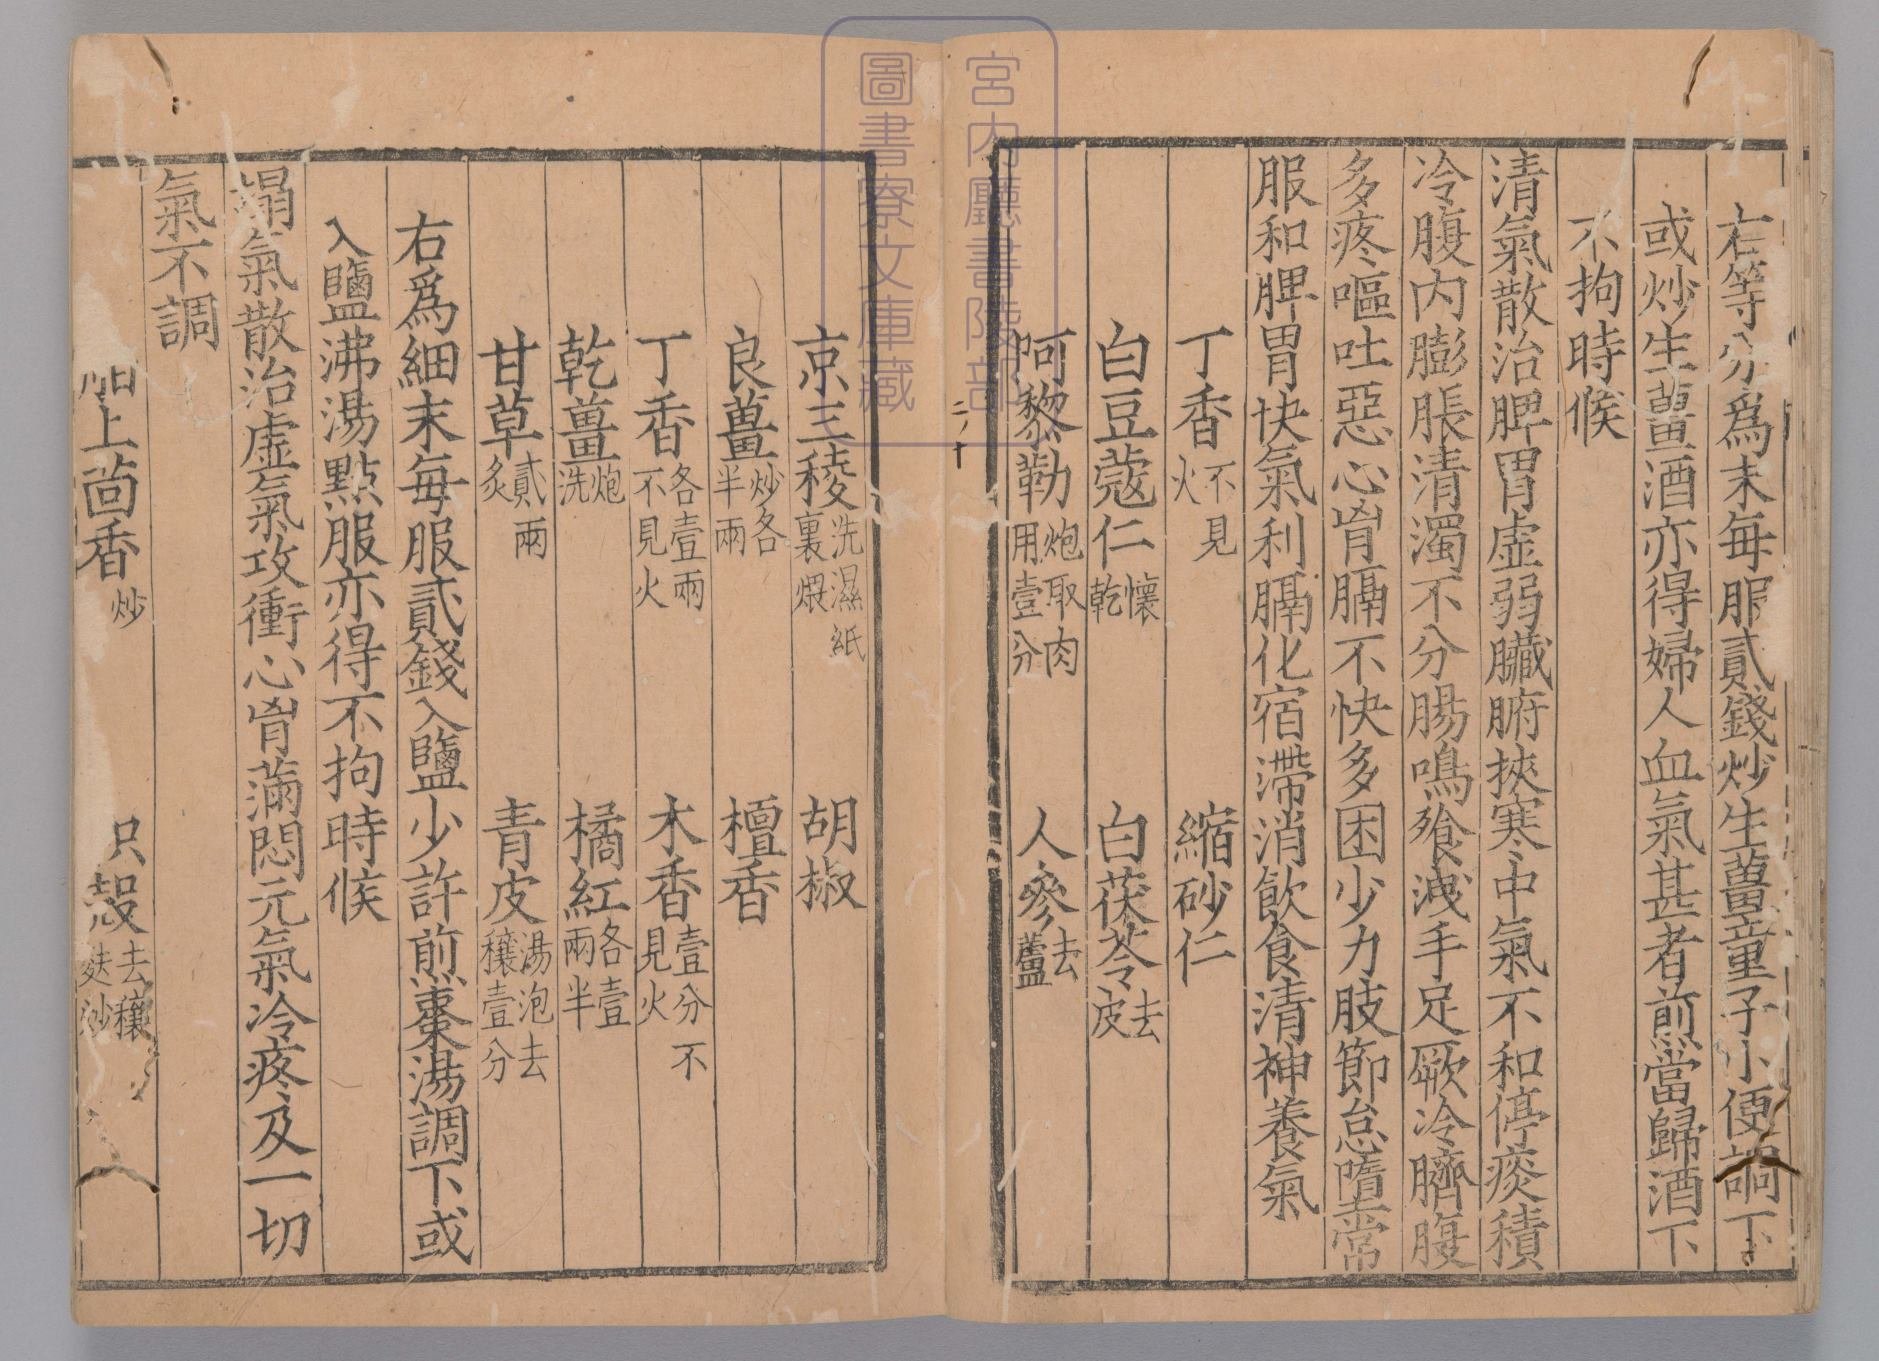 右等分爲末每服貳錢炒生薑童子小便調下
或炒生薑酒亦得婦人血氣甚者煎當歸酒下
不拘時候
清氣散治脾胃虛弱臟腑挾寒中氣不和停痰積
冷腹内膨脹清濁不分腸鳴飱洩手足厥冷臍腹
多疼嘔吐惡心胷膈不快多困少力肢節怠墮常
服和脾胃快氣利膈化宿滯消飲食清神養氣
丁香不見火　縮砂仁
白豆蔻仁懷乾　白茯苓去皮
呵黎勒炮取肉用壹分　人參去蘆
二ノ十
京三稜洗濕紙裏煨　胡椒
良薑炒各半兩　檀香
丁香各壹兩不見火　木香壹分不見火
乾薑炮洗　橘紅各壹兩半
甘草貳兩炙　青皮湯泡去穰壹分
右爲細末每服貳錢入鹽少許煎棗湯調下或
入鹽沸湯點服亦得不拘時候
搨氣散治虛氣攻衝心胷滿悶元氣冷疼及一切
氣不調
舶上茴香炒　只殼去穰麩炒
宮内廳書陵部
圖書寮文庫藏